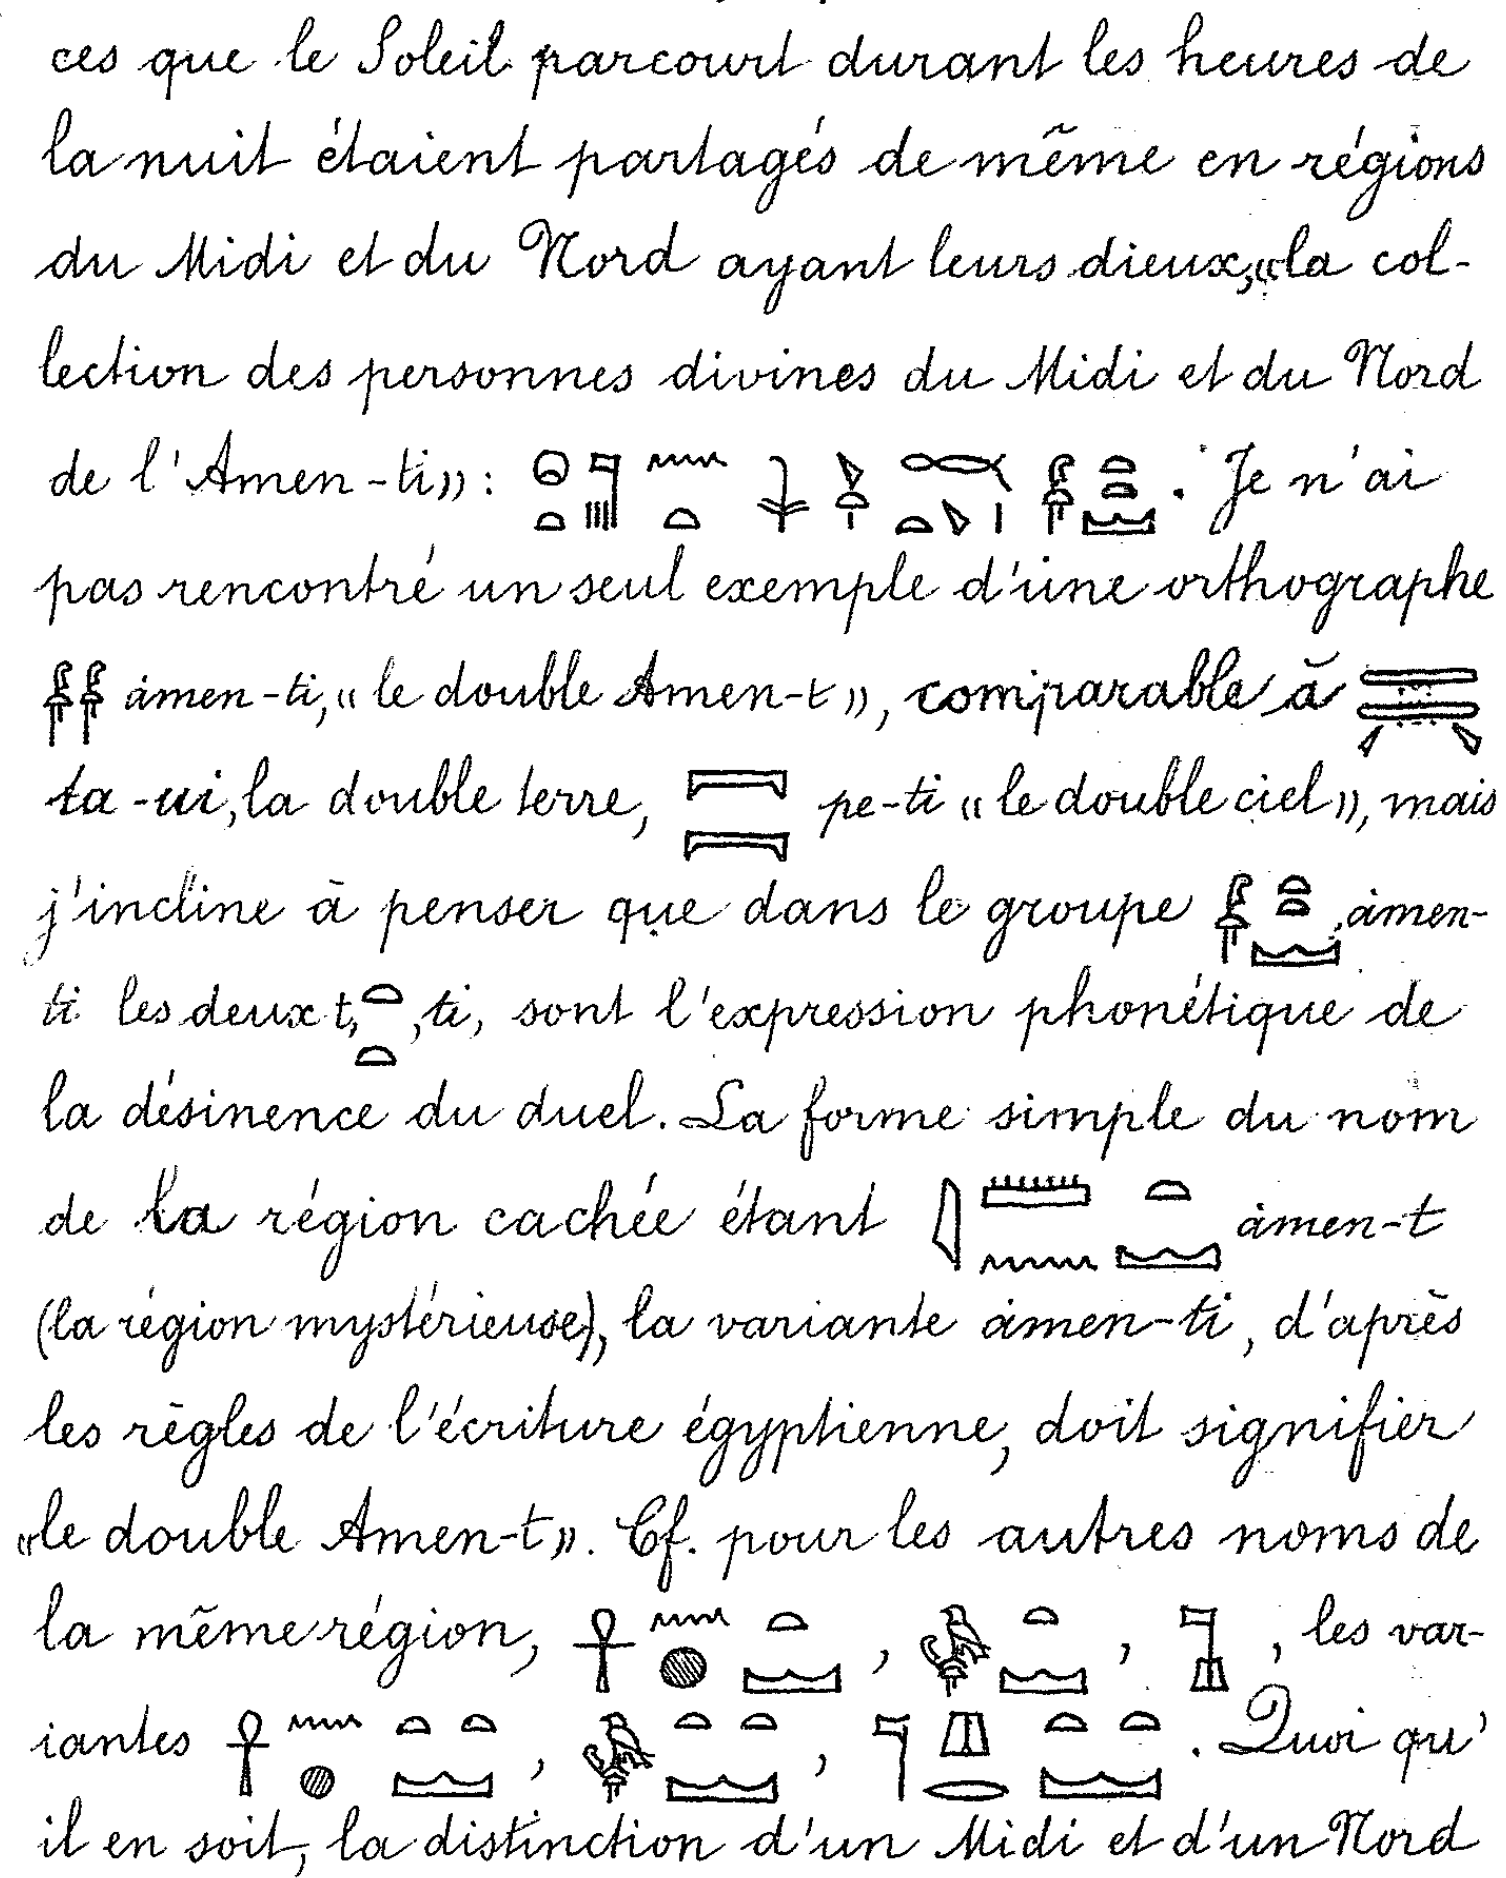 ces que le Soleil parcourt durant les heures de
la nuit étaient partagés de même en régions
du Midi et du Nord ayant leurs dieux, «la col-
lection des personnes divines du Midi et du Nord
de l'Amen-ti»: . Je n'ai
pas rencontré un seul exemple d'une orthographe
amen-ti, «le double Amen-t», comparable à
ta-ui, la double terre, pe-ti «le double ciel», mais
j'incline à penser que dans le groupe , amen-
ti les deux t, , ti, sont l'expression phonétique de
la désinence du duel. La forme simple du nom
de la région cachée étant amen-t
(la région mystérieuse), la variante amen-ti, d'après
les règles de l'écriture égyptienne, doit signifier
«le double Amen-t». Cf. pour les autres noms de
la même région, , , , les var-
iantes , , . Quoi qu'
il en soit, la distinction d'un Midi et d'un Nord